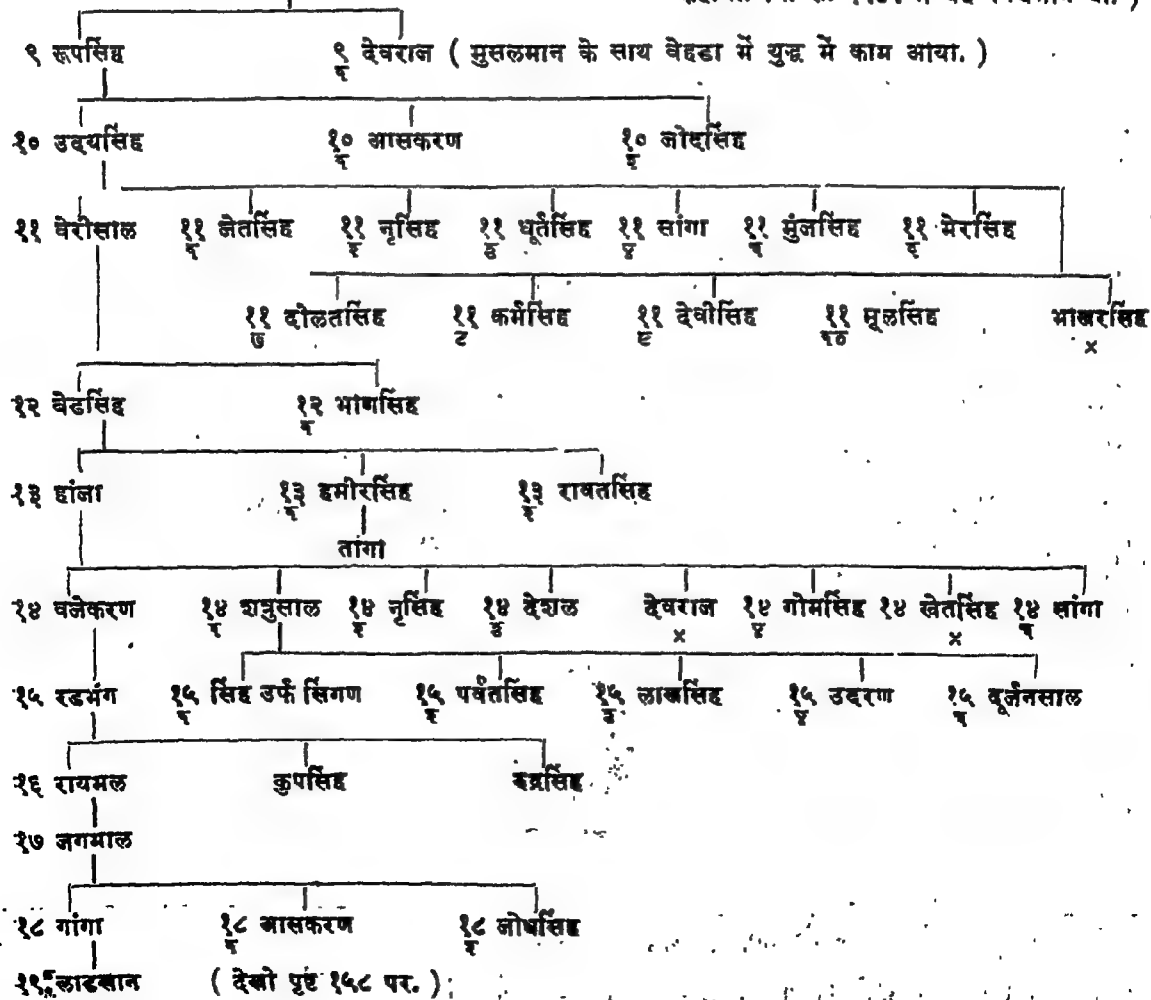 ९ रूपसिंह ९/२ देवराज ( मुसलमान के साथ वेहडा में युद्ध में काम आया. )
१० उदयसिंह १०/२ आसकरण १०/३ जोदसिंह
११ वेरीसाल ११/२ जेतसिंह ११/३ नृसिंह ११/४ धूर्तसिंह ११/५ सांगा ११ मुंजसिंह ११/६ मेरसिंह
११/७ दोलतसिंह ११/८ कर्मसिंह ११/९ देवीसिंह ११/१० मूलसिंह भाखरसिंह ×
१२ वेडसिंह १२/२ भाणसिंह
१३ हांजा १३/२ हमीरसिंह १३/३ रावतसिंह
तांगा
१४ वजेकरण १४/२ शत्रुसाल १४/३ नृसिंह १४/४ देशल देवराज × १४/५ गोमसिंह १४ खेतसिंह × १४ सांगा
१५ रडमंग १५/२ सिंह उर्फ सिंगण १५/३ पर्वतसिंह १५/४ लाखसिंह १५/५ उदरण १५ दूर्जनसाल
१६ रायमल कुपसिंह रुद्रसिंह
१७ जगमाल
१८ गांगा १८/२ आसकरण १८/३ जोधसिंह
१९ लाडखान ( देखो पृष्ट १५८ पर. )